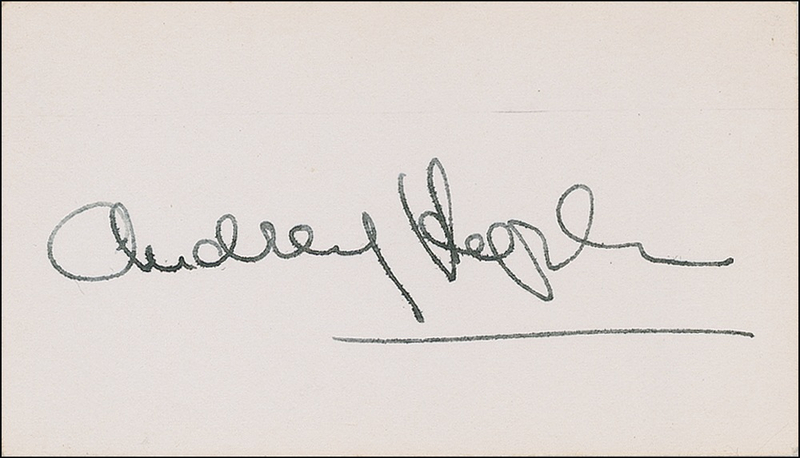 Audrey Hepburn